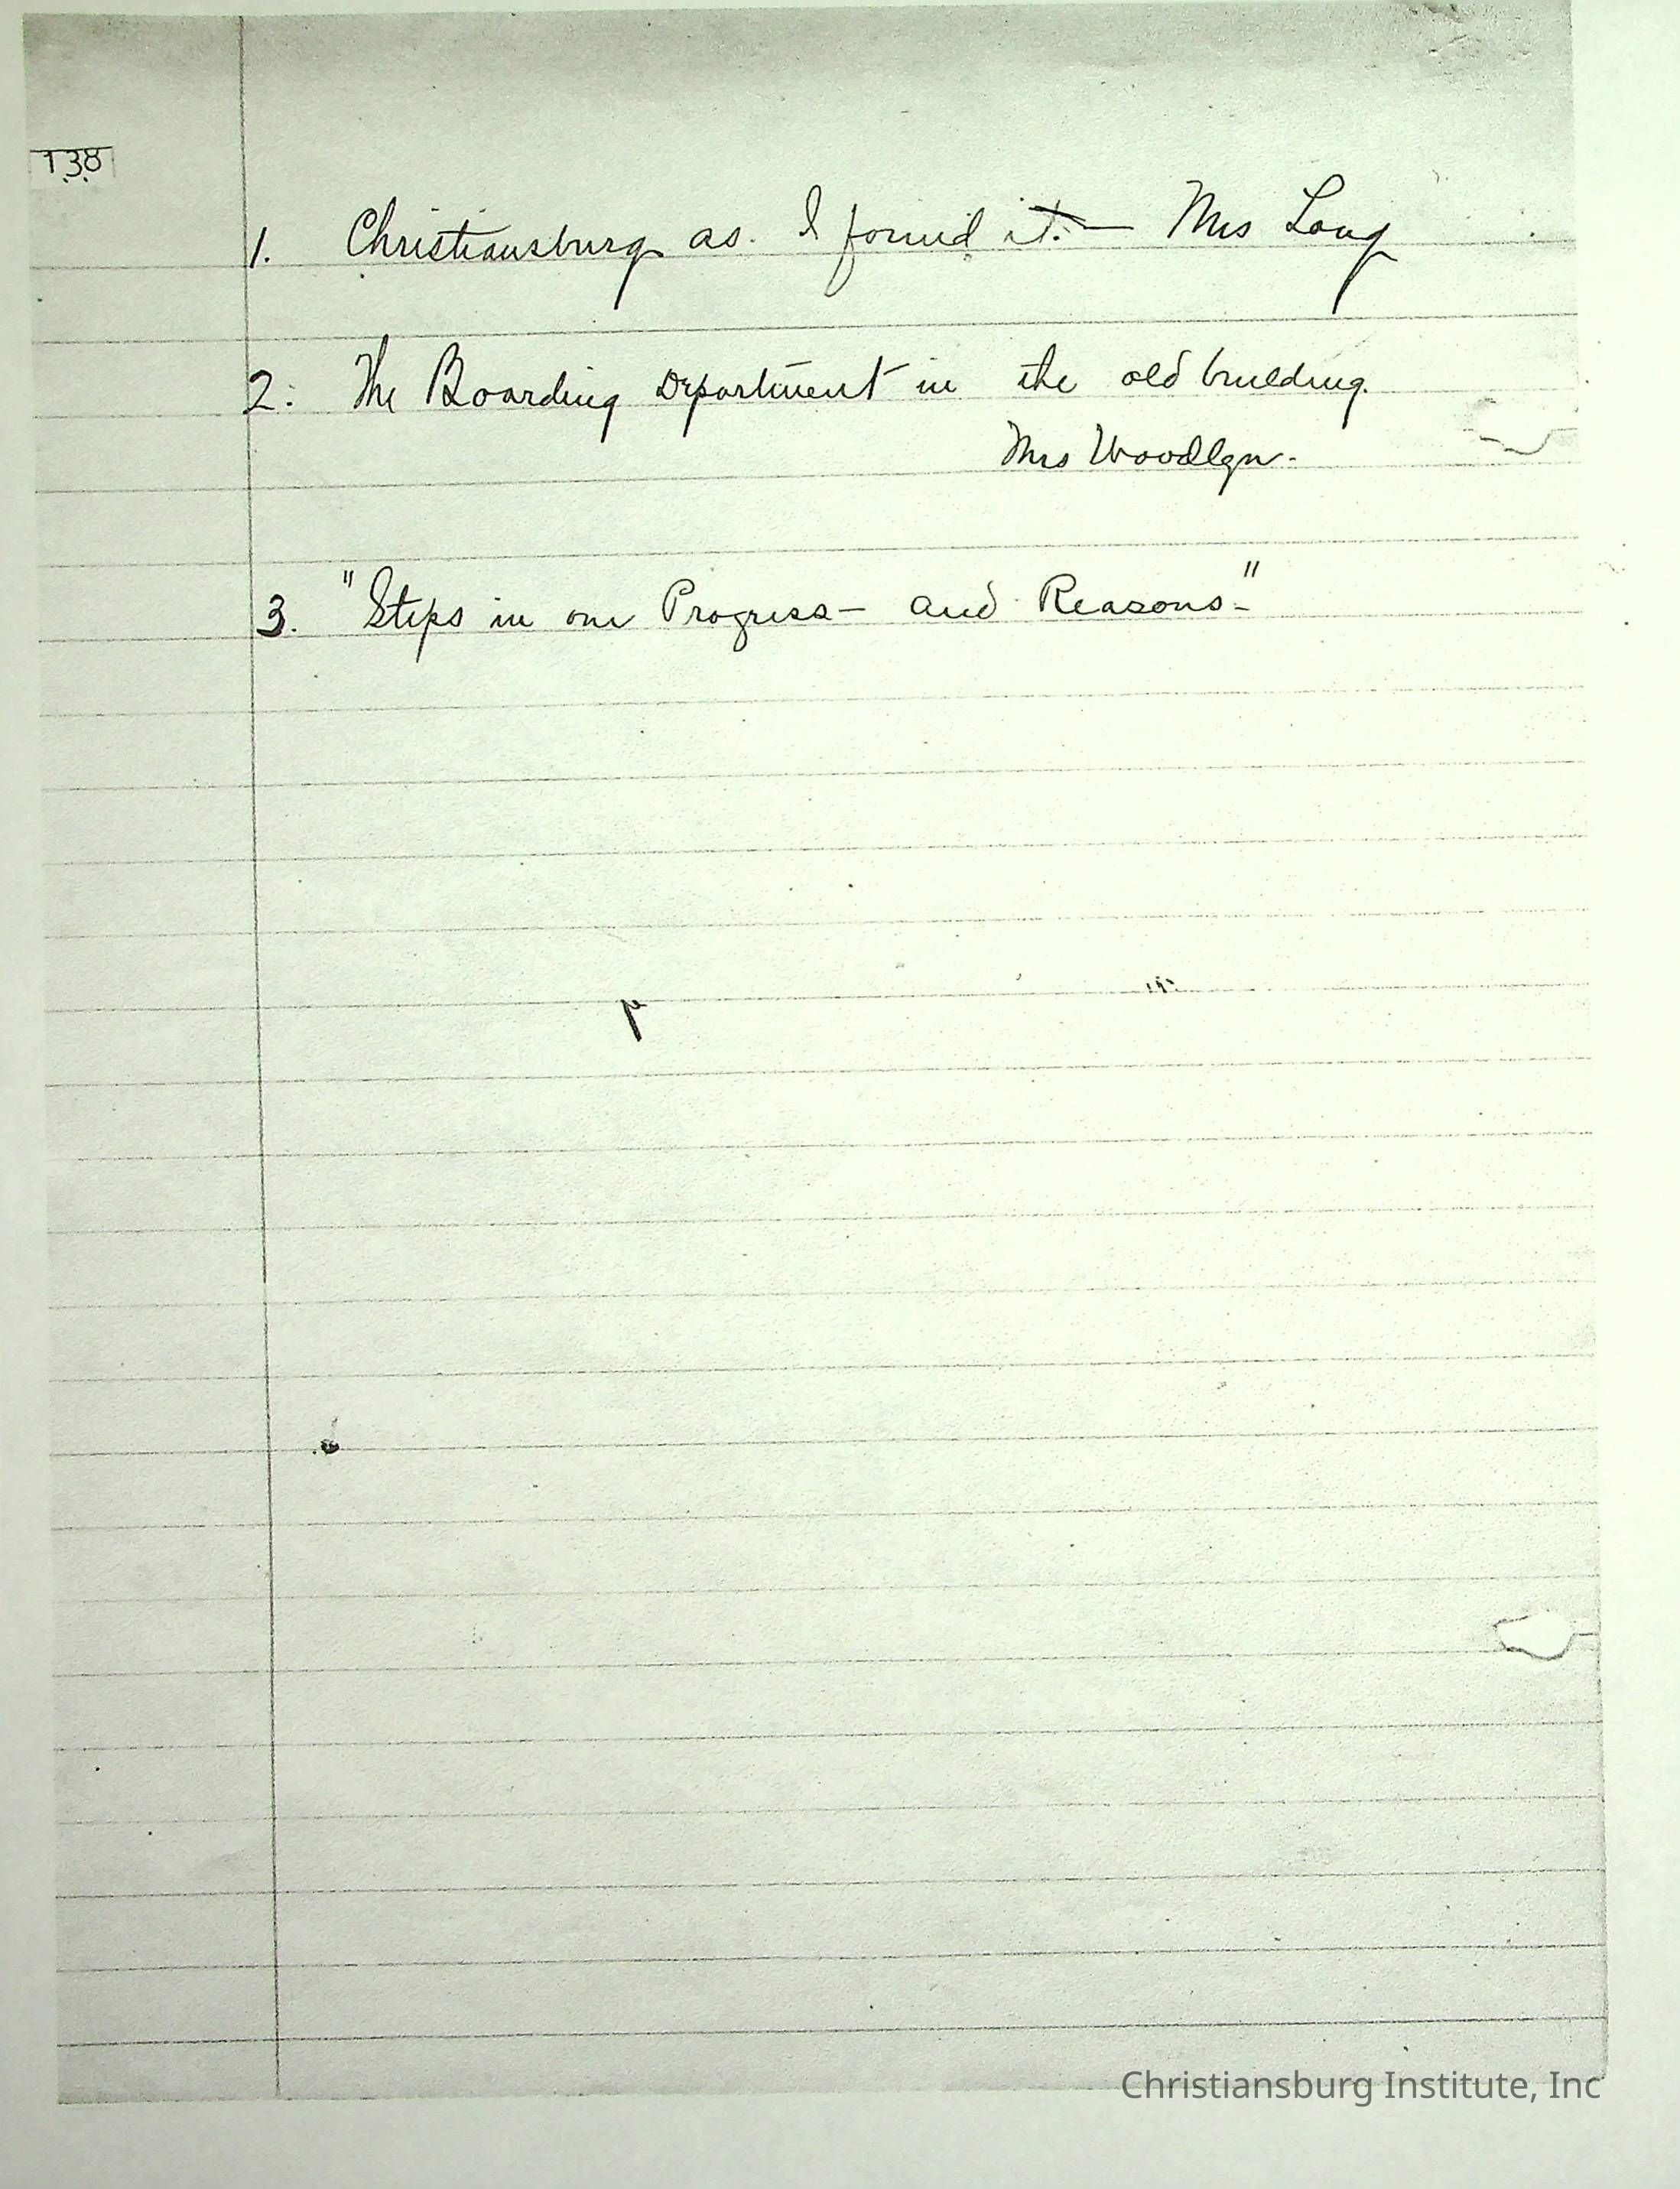 138
1. Christiansburg as I found it. — Mrs Long
2. The Boarding Department in the old building.
Mrs Woodlyn.
3. "Steps in our Progress — and Reasons—"
Christiansburg Institute, Inc